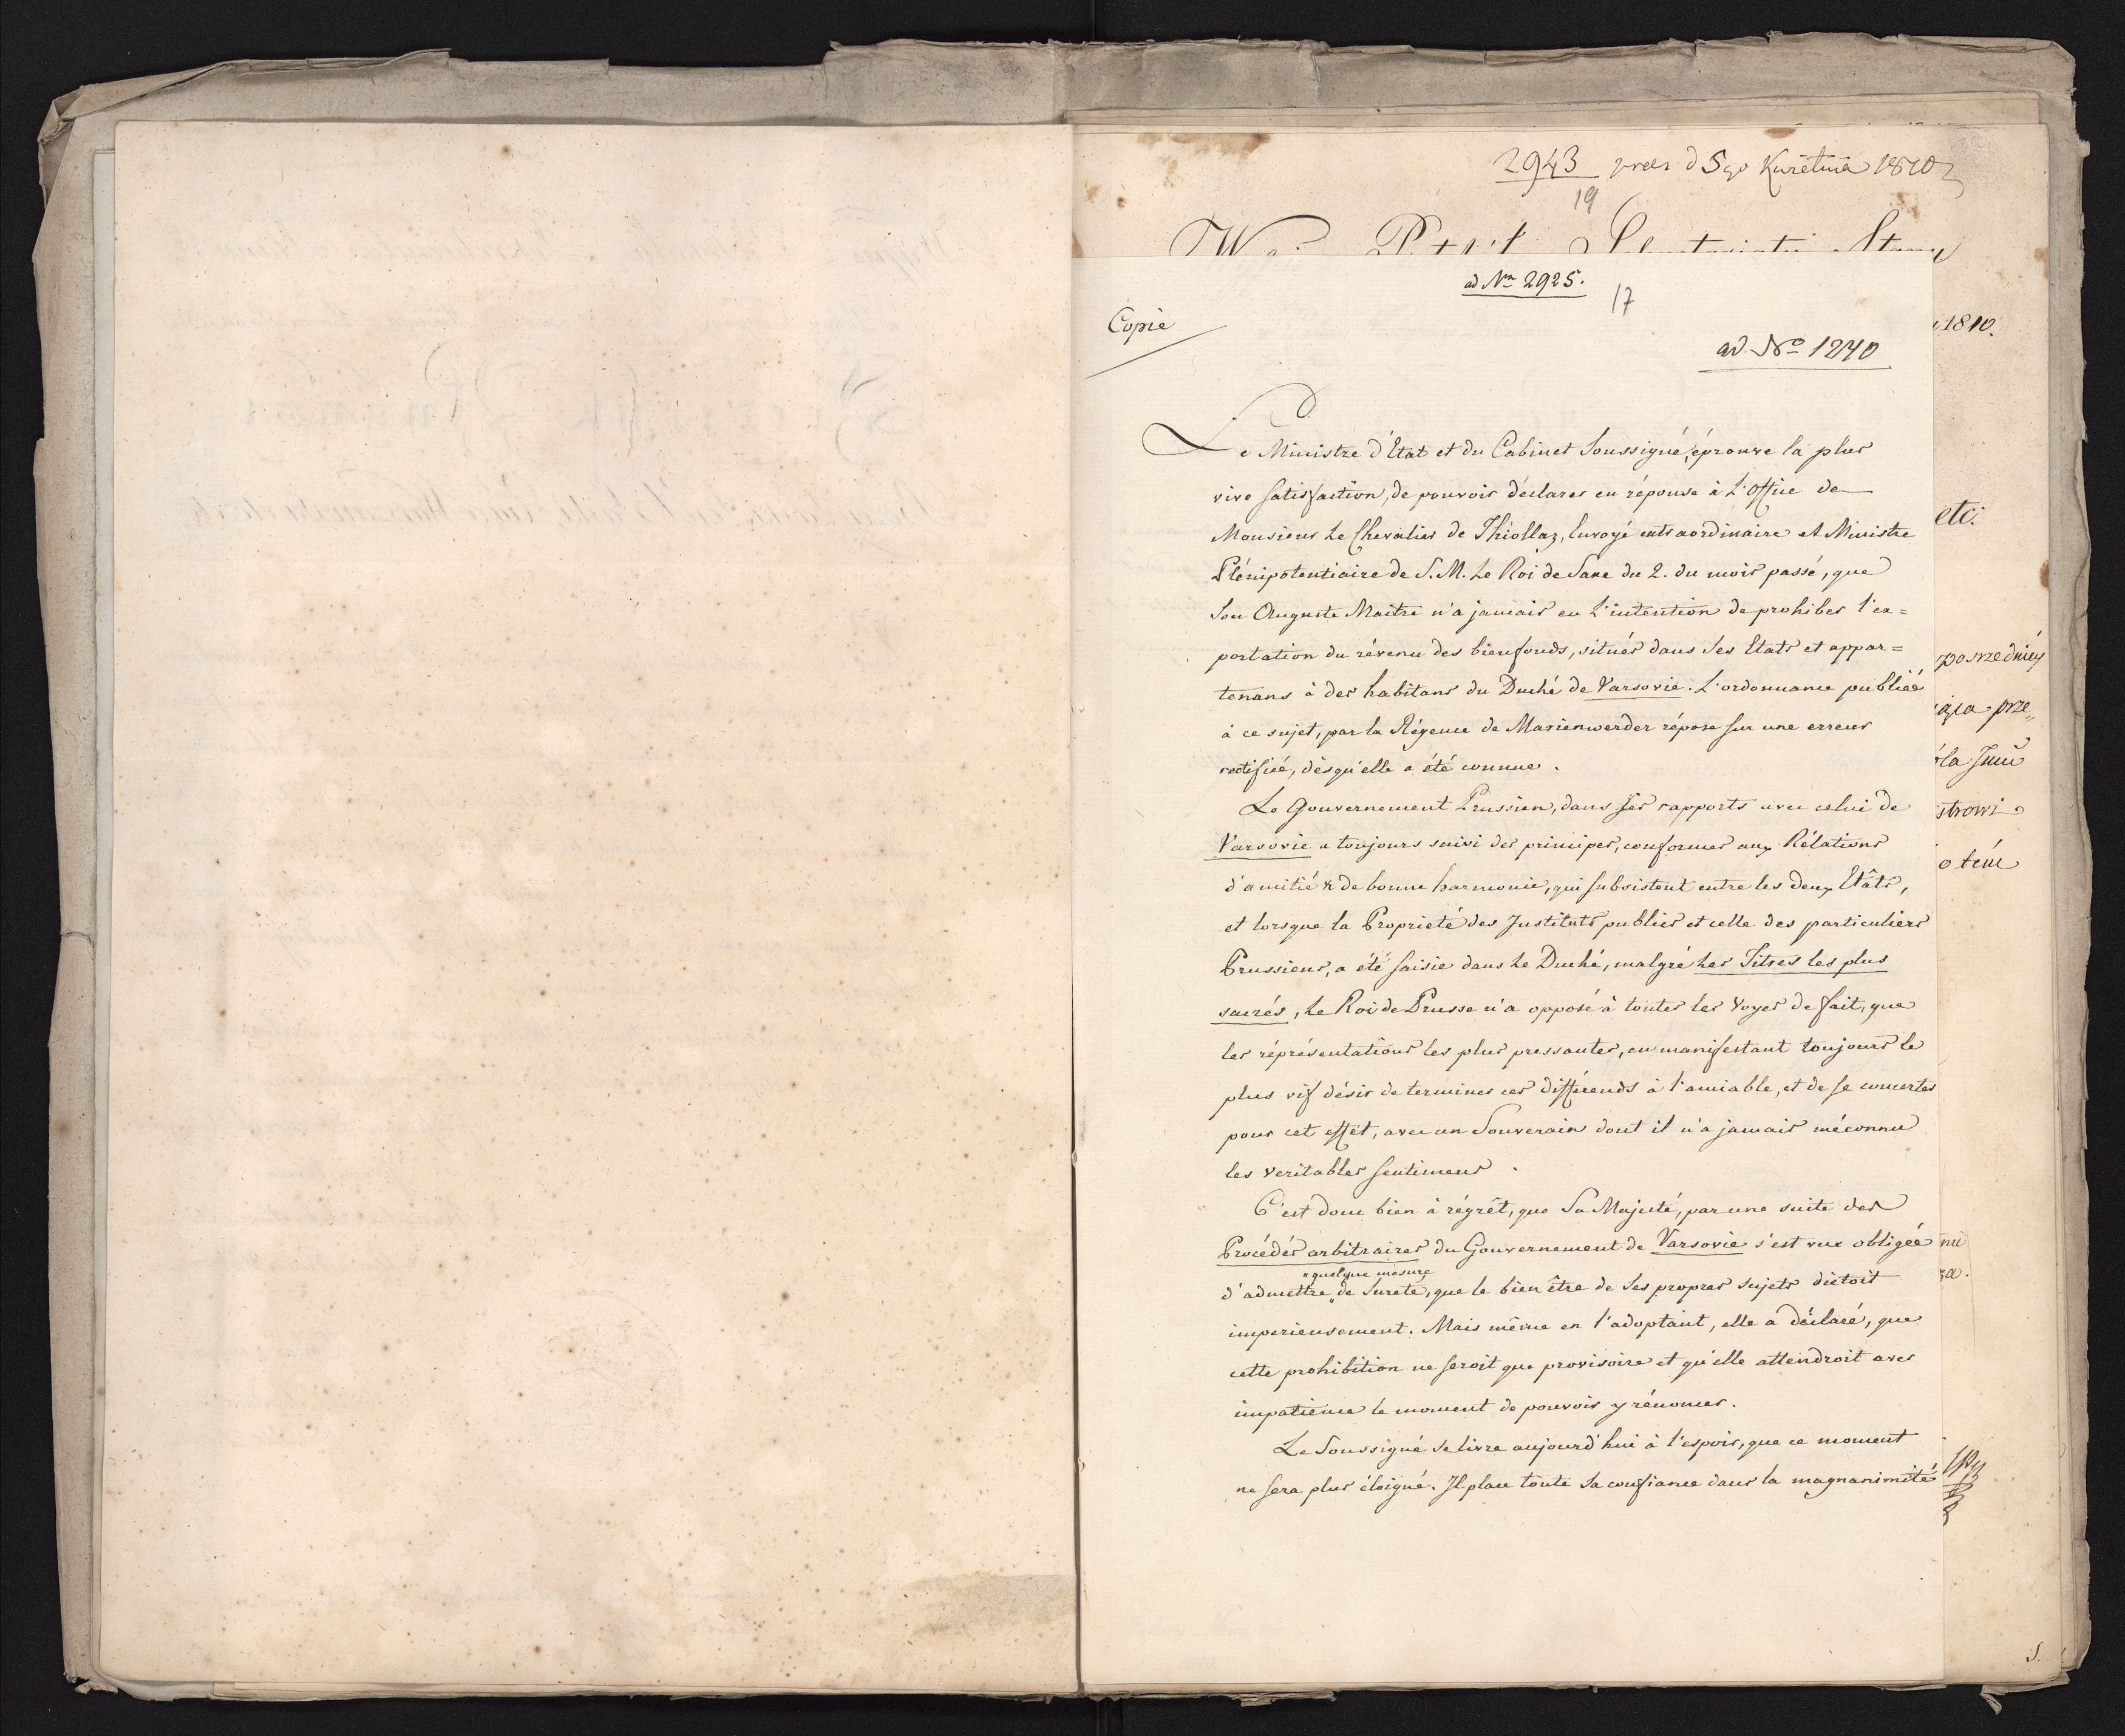 2943 5go Kwietnia 1810
19
ad Nrm 2925.
17
Copie
ad No 1240
Le Ministre d'Etat et du Cabinet Soussigné, éprouve la plus
vive satisfaction, de pouvoir déclarer en réponse à L'Office de
Monsieur Le Chevalier de Thiollaz, Envoyé extraordinaire et Ministre
Plénipotentiaire de S. M. Le Roi de Saxe du 2. du mois passé, que
Son Auguste Maitre n'a jamais eu L'intention de prohiber l'ex=
portation du révenu des bienfonds, situés dans Ses Etats et appar=
tenans à des habitans du Duché de Varsovie. L'ordonnance publiée
à ce sujet, par la Régence de Marienwerder répose sur une erreur
rectifiée, dèsqu'elle a été connue.
Le Gouvernement Prussien, dans ses rapports avec celui de
Varsovie a toujours suivi des principes, conformes aux Rélations
d'amitié & de bonne harmonie, qui subsistent entre les deux Etâts,
et lorsque la Proprieté des Instituts publics et celle des particuliers
Prussiens, a été saisie dans Le Duché, malgré Les Titres les plus
sacrés, Le Roi de Prusse n'a opposé à toutes les voyes de fait, que
les réprésentations les plus pressantes, en manifestant toujours le
plus vif désir de terminer ces différends à l'amiable, et de se concerter
pour cet effèt, avec un Souverain dont il n'a jamais méconnu
les veritables sentimens.
C'est donc bien à régrêt, que Sa Majesté, par une suite des
Procédés arbitraires du Gouvernement de Varsovie s'est vue obligée
„quelque mésure
d'admettre „de Sureté, que le bien être de Ses propres sujets dictoit
imperieusement. Mais même en l'adoptant, elle a déclaré, que
cette prohibition ne seroit que provisoire et qu'elle attendroit avec
impatience le moment de pouvoir y rénoncer.
Le Soussigné se livre aujourd'hui à l'espoir, que ce moment
ne sera plus éloigné. Il place toute Sa confiance dans la magnanimité
1810.
etc.
posrzedniey
prze„
strowi
o tém